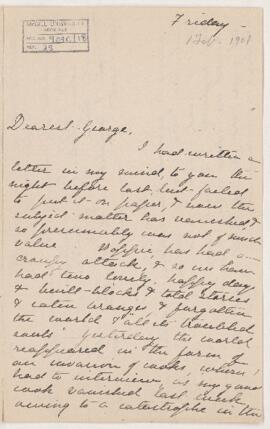 McGILL UNIVERSITY
ARCHIVES
ACC. NO.
REF.
Friday -
1 Feb. 1901
Dearest George,
I had written a
letter in my mind to you the
night before last but failed
to put it on paper, & now the
subject matter has vanished &
so presumably was not of much
value. has had a
croupy attack, & so we have
had two lovely happy days
& built blocks & told stories
& eaten oranges & forgotten
the world & all its troubled
souls. Yesterday the world
reappeared in the form of
an invasion of cooks, whom I
had to interview, as my good
cook vanished last week
owing to a catastrophe in the